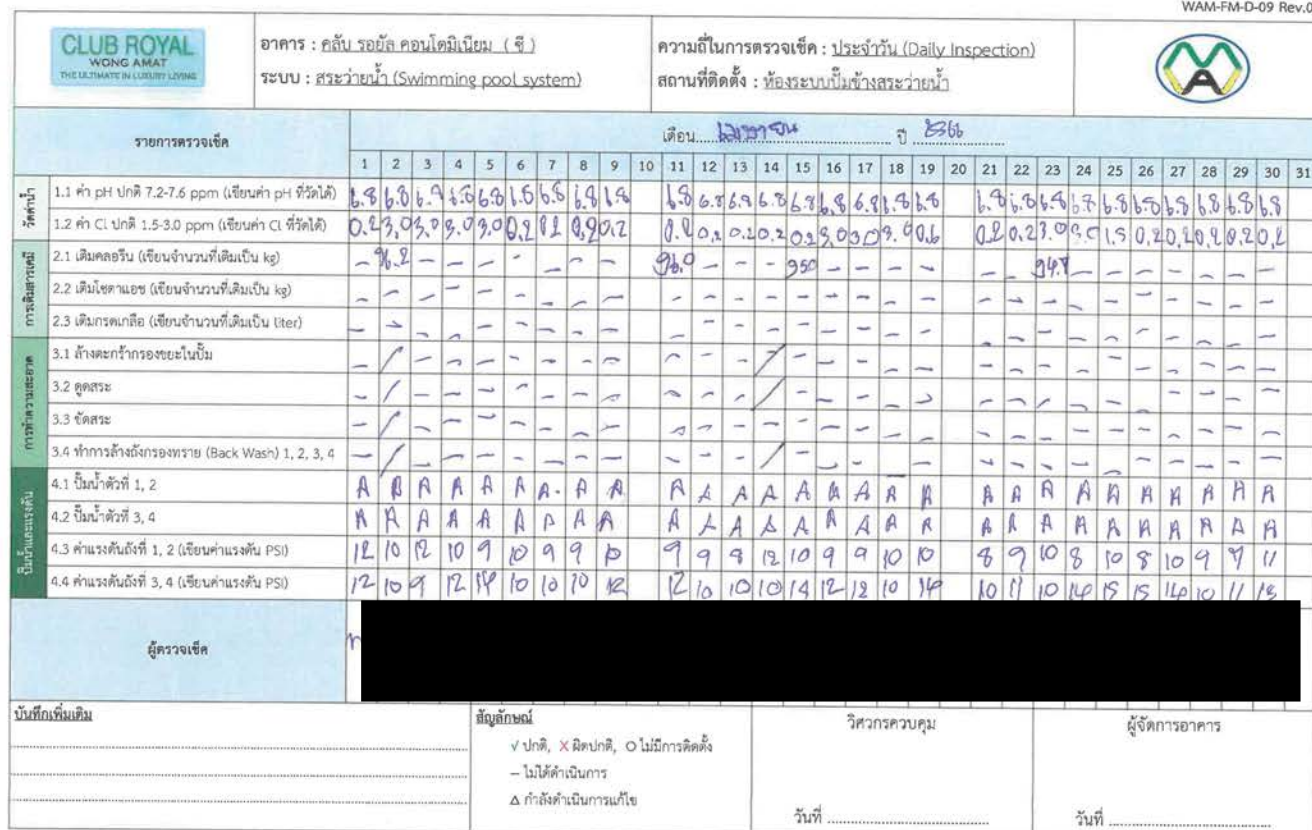 WAM-FM-D-09 Rev.0
CLUB ROYAL
WONG AMAT
THE ULTIMATE IN LUXURY LIVING
อาคาร : คลับ รอยัล คอนโดมิเนียม ( ซี )
ระบบ : สระว่ายน้ำ (Swimming pool system)
ความถี่ในการตรวจเช็ค : ประจำวัน (Daily Inspection)
สถานที่ติดตั้ง : ห้องระบบปั๊มข้างสระว่ายน้ำ
MA
รายการตรวจเช็ค
เดือน เมษายน ปี 2566
1 2 3 4 5 6 7 8 9 10 11 12 13 14 15 16 17 18 19 20 21 22 23 24 25 26 27 28 29 30 31
วัดค่าน้ำ
1.1 ค่า pH ปกติ 7.2-7.6 ppm (เขียนค่า pH ที่วัดได้) 6.8 6.8 6.9 6.8 6.8 6.8 6.8 6.8 6.8 6.8 6.8 6.9 6.8 6.8 6.8 6.8 6.8 6.8 6.8 6.8 6.8 6.8 6.8 6.8 6.8 6.8 6.8 6.8
1.2 ค่า CL ปกติ 1.5-3.0 ppm (เขียนค่า CL ที่วัดได้) 0.2 3.0 3.0 3.0 3.0 0.2 0.2 0.2 0.2 0.2 0.2 0.2 0.2 0.2 3.0 3.0 3.0 0.6 0.2 0.2 3.0 3.0 1.5 0.2 0.2 0.2 0.2 0.2
การเติมสารเคมี
2.1 เติมคลอรีน (เขียนจำนวนที่เติมเป็น kg) - 96.2 - - - - - - - 96.0 - - - 950 - - - - - - 94.8 - - - - - - -
2.2 เติมโซดาแอช (เขียนจำนวนที่เติมเป็น kg) - - - - - - - - - - - - - - - - - - - - - - - - - - - -
2.3 เติมกรดเกลือ (เขียนจำนวนที่เติมเป็น liter) - - - - - - - - - - - - - - - - - - - - - - - - - - - -
การทำความสะอาด
3.1 ล้างตะกร้ากรองขยะในปั๊ม - / - - - - - - - - - - / - - - - - - - - - - - - - - -
3.2 ดูดสระ - / - - - - - - - - - - / - - - - - - - - - - - - - - -
3.3 ขัดสระ - / - - - - - - - - - - - - - - - - - - - - - - - - - -
3.4 ทำการล้างถังกรองทราย (Back Wash) 1, 2, 3, 4 - / - - - - - - - - - - / - - - - - - - - - - - - - - -
ปั๊มน้ำและแรงดัน
4.1 ปั๊มน้ำตัวที่ 1, 2 A A A A A A A A A A A A A A A A A A A A A A A A A A A A
4.2 ปั๊มน้ำตัวที่ 3, 4 A A A A A A A A A A A A A A A A A A A A A A A A A A A A
4.3 ค่าแรงดันถังที่ 1, 2 (เขียนค่าแรงดัน PSI) 12 10 12 10 9 10 9 9 10 9 9 8 12 10 9 9 10 10 8 9 10 8 10 8 10 9 9 11
4.4 ค่าแรงดันถังที่ 3, 4 (เขียนค่าแรงดัน PSI) 12 10 9 12 14 10 10 10 12 12 10 10 10 14 12 12 10 14 10 11 10 14 15 15 14 10 11 13
ผู้ตรวจเช็ค
บันทึกเพิ่มเติม
สัญลักษณ์
√ ปกติ, X ผิดปกติ, O ไม่มีการติดตั้ง
– ไม่ได้ดำเนินการ
Δ กำลังดำเนินการแก้ไข
วิศวกรควบคุม
วันที่
ผู้จัดการอาคาร
วันที่